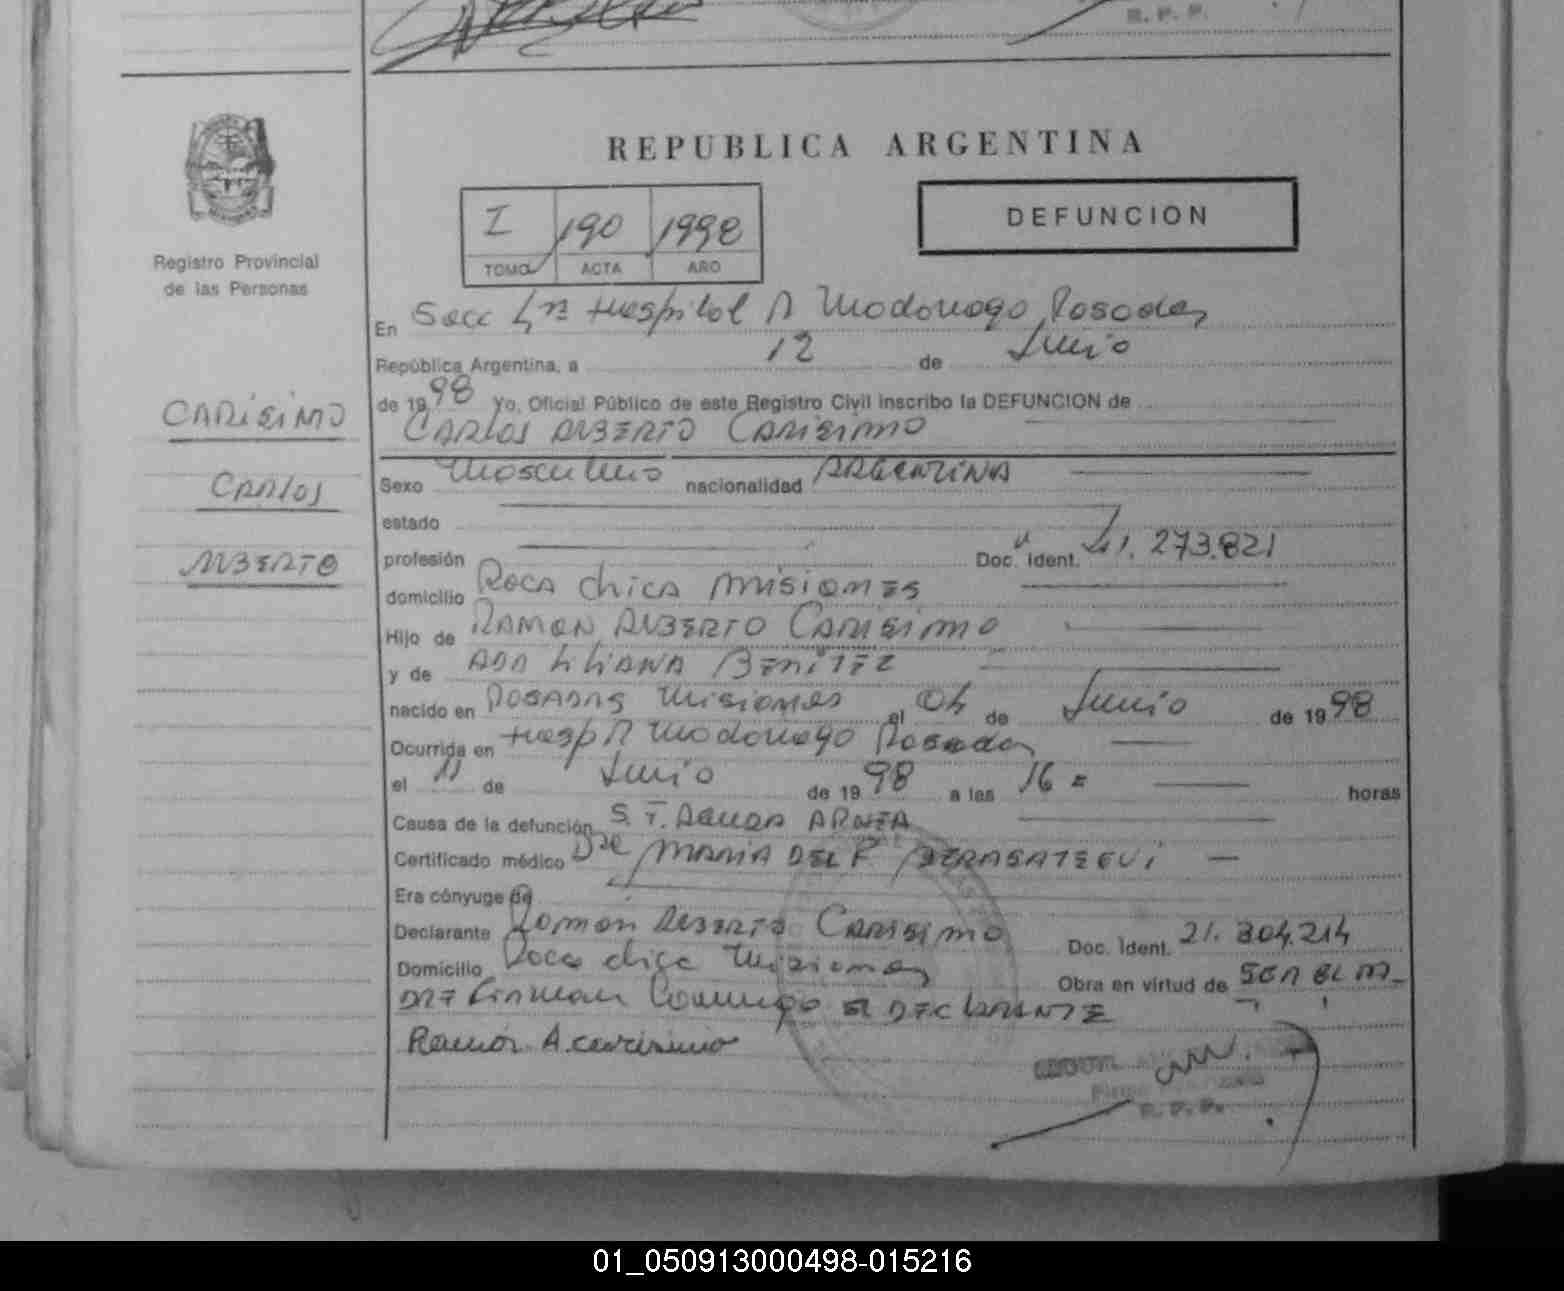 R. P. P.
REPUBLICA ARGENTINA
I 190 1998
TOMO ACTA AÑO
DEFUNCION
Registro Provincial
de las Personas
CARISIMO
CARLOS
ALBERTO
En Secc 4ta Hospital R Madariaga Posadas
República Argentina, a 12 de Junio
de 1998 Yo, Oficial Público de este Registro Civil inscribo la DEFUNCION de
CARLOS ALBERTO CARISIMO
Sexo Masculino nacionalidad ARGENTINA
estado
profesión Doc. Ident. 41.273.821
domicilio ROCA CHICA MISIONES
Hijo de RAMON ALBERTO CARISIMO
y de ADA LILIANA BENITEZ
nacido en POSADAS MISIONES el 04 de Junio de 1998
Ocurrida en Hosp R Madariaga Posadas
el 11 de Junio de 1998 a las 16 = horas
Causa de la defunción S. T. AGUDA
Certificado médico Dra MARIA DEL P. BERASATEGUI
Era cónyuge de
Declarante Ramón ALBERTO CARISIMO Doc. Ident. 21.304.214
Domicilio Roca chica Misiones Obra en virtud de
Conmigo EL DECLARANTE
Ramón A. carisimo
R. P. P.
01_050913000498-015216